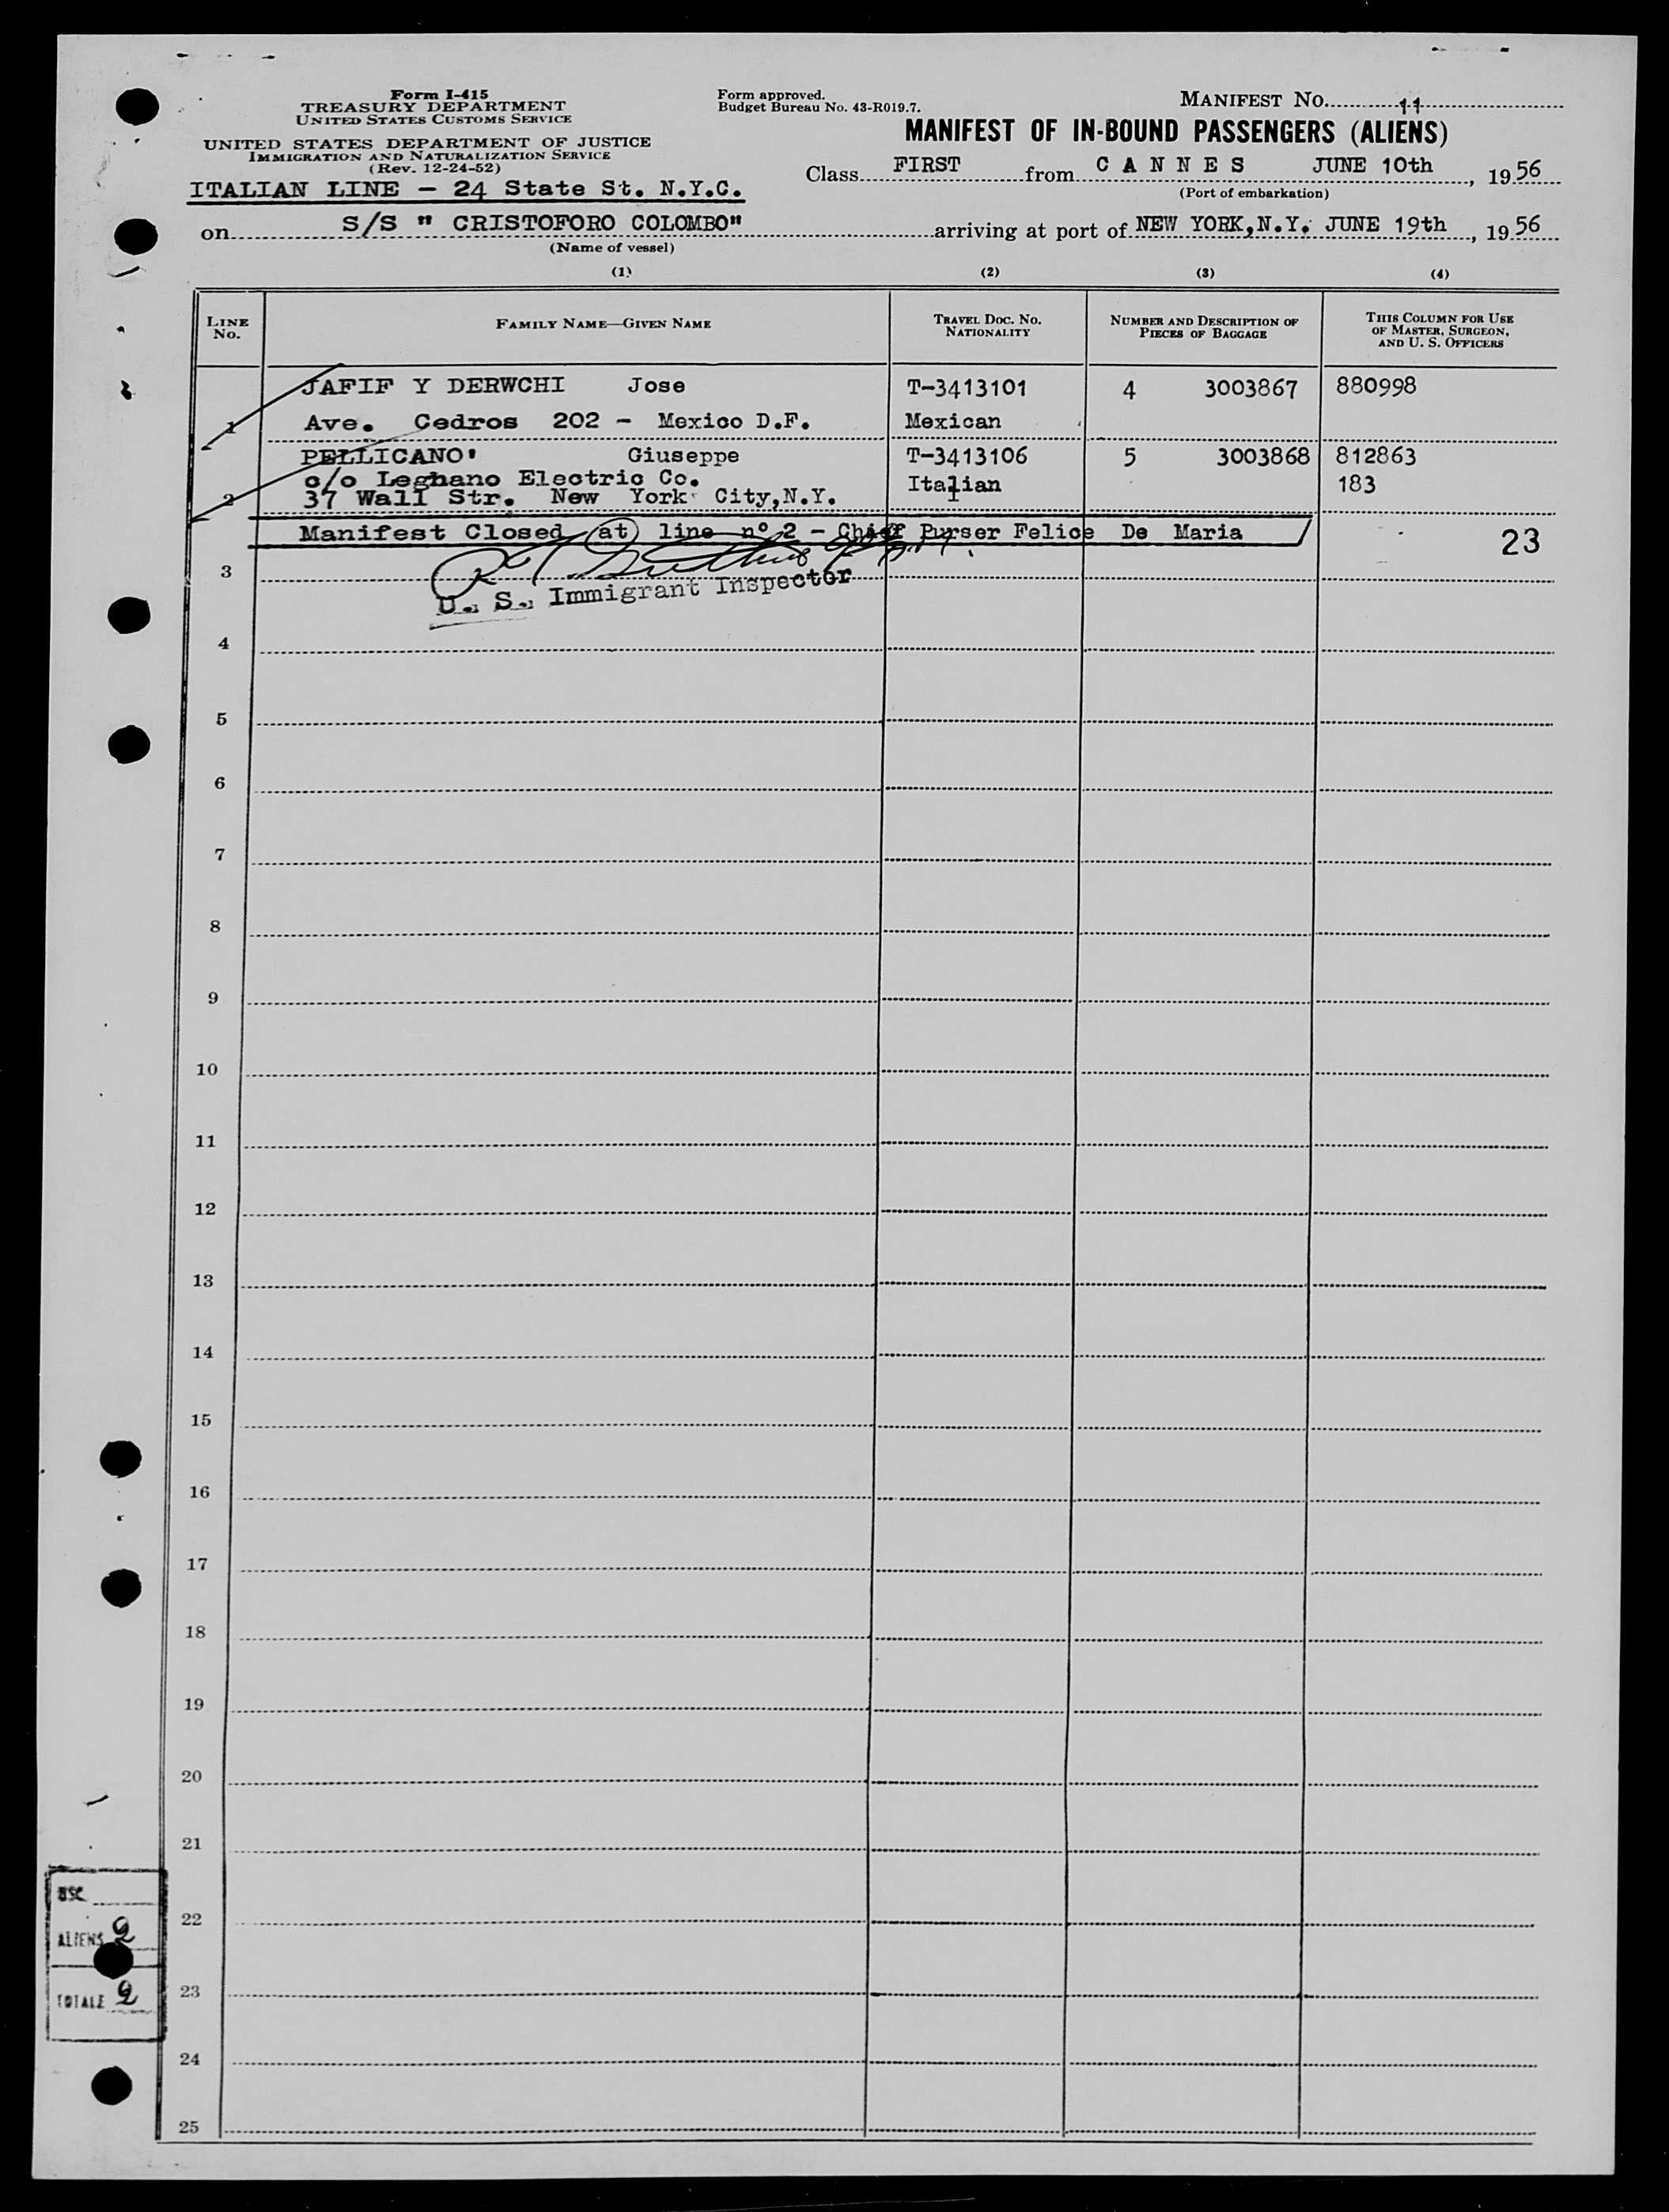 Form I-415
TREASURY DEPARTMENT
UNITED STATES CUSTOMS SERVICE
UNITED STATES DEPARTMENT OF JUSTICE
IMMIGRATION AND NATURALIZATION SERVICE
(Rev. 12-24-52)
ITALIAN LINE - 24 State St. N.Y.C.
Form approved.
Budget Bureau No. 43-R019.7.
MANIFEST NO. 11
MANIFEST OF IN-BOUND PASSENGERS (ALIENS)
Class FIRST from C A N N E S JUNE 10th, 1956
(Port of embarkation)
on S/S " CRISTOFORO COLOMBO" arriving at port of NEW YORK,N.Y. JUNE 19th, 1956
(Name of vessel)
(1) (2) (3) (4)
LINE No. FAMILY NAME—GIVEN NAME TRAVEL DOC. No. NATIONALITY NUMBER AND DESCRIPTION OF PIECES OF BAGGAGE THIS COLUMN FOR USE OF MASTER, SURGEON, AND U. S. OFFICERS
JAFIF Y DERWCHI Jose T-3413101 4 3003867 880998
1 Ave. Cedros 202 - Mexico D.F. Mexican
PELLICANO' Giuseppe T-3413106 5 3003868 812863
c/o Leghano Electric Co. Italian 183
2 37 Wall Str. New York City,N.Y.
Manifest Closed at line n° 2 - Chief Purser Felice De Maria 23
3
U. S. Immigrant Inspector
4
5
6
7
8
9
10
11
12
13
14
15
16
17
18
19
20
21
22
23
24
25
USC
ALIENS 2
TOTALE 2